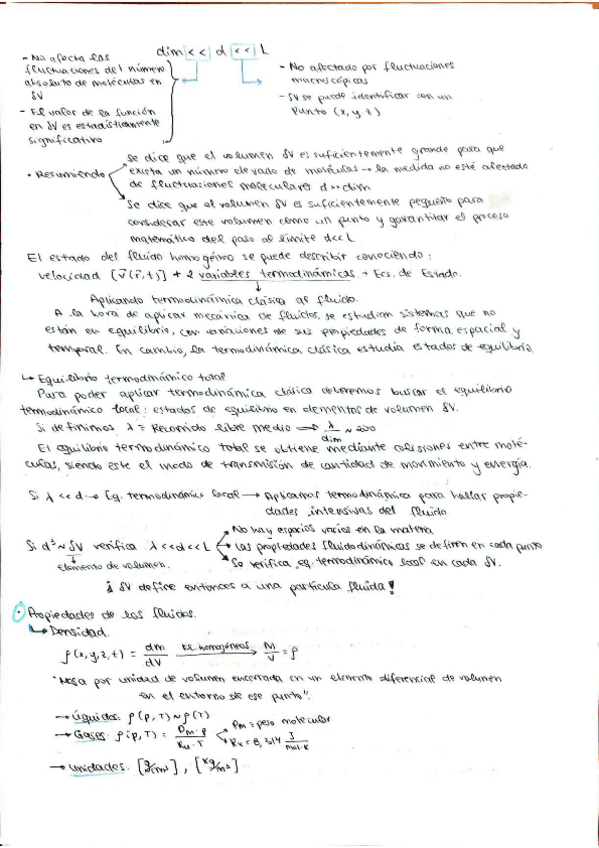 dim << d << L
- No afecta las
fluctuaciones del número
absoluto de moléculas en
δV
- El valor de la función
en δV es estadísticamente
significativo
- No afectado por fluctuaciones
macroscópicas
- δV se puede identificar con un
punto (x, y, z)
• Resumiendo
Se dice que el volumen δV es suficientemente grande para que
exista un número elevado de moléculas → la medida no esté afectada
de fluctuaciones moleculares d >> dim
Se dice que el volumen δV es suficientemente pequeño para
considerar este volumen como un punto y garantizar el proceso
matemático del paso al límite d<< L
El estado del fluido homogéneo se puede describir conociendo:
velocidad [v⃗(r⃗,t)] + 2 variables termodinámicas → Ecs. de Estado.
Aplicando termodinámica clásica al fluido.
A la hora de aplicar mecánica de fluidos, se estudian sistemas que no
están en equilibrio, con variaciones de sus propiedades de forma espacial y
temporal. En cambio, la termodinámica clásica estudia estados de equilibrio.
↳ Equilibrio termodinámico total
Para poder aplicar termodinámica clásica deberemos buscar el equilibrio
termodinámico local: estados de equilibrio en elementos de volumen δV.
Si definimos λ = Recorrido libre medio → λ/dim ~ 200
El equilibrio termodinámico total se obtiene mediante colisiones entre molé-
culas, siendo este el modo de transmisión de cantidad de movimiento y energía.
Si λ << d → Eq. termodinámico local → Aplicamos termodinámica para hallar propie-
dades intensivas del fluido.
Si d³ ~ δV verifica λ << d << L
elemento de volumen.
No hay espacios vacíos en la materia
Las propiedades fluidodinámicas se definen en cada punto
Se verifica eq. termodinámico local en cada δV.
¡ δV define entonces a una partícula fluida!
• Propiedades de los fluidos.
↳ Densidad.
ρ(x,y,z,t) = dm/dV → M/V = ρ
homogéneos
"Masa por unidad de volumen encerrada en un elemento diferencial de volumen
en el entorno de ese punto".
→ Líquidos: ρ(p,T) ~ ρ(T)
→ Gases: ρ(p,T) = PM · p / Ru · T
PM = peso molecular
Ru = 8,314 J/mol·K
→ Unidades: [g/m³], [kg/m³]